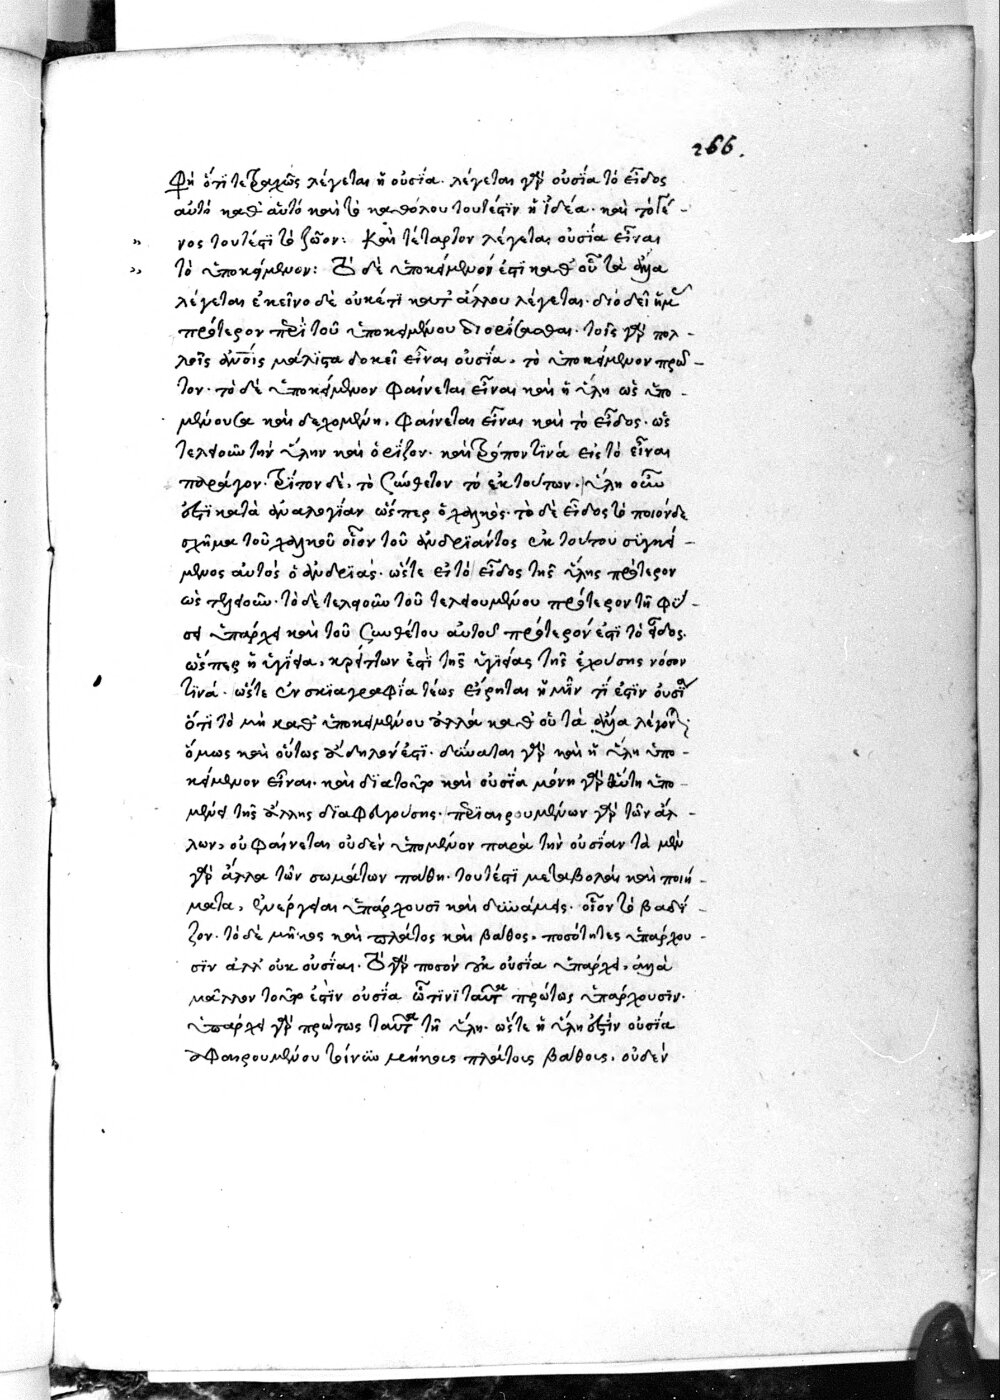 266.
φη ὅτι τετραχῶς λέγεται ἡ οὐσία· λέγεται γὰρ οὐσία τὸ εἶδος
αὐτὸ καθ' αὑτὸ καὶ τὸ καθόλου τουτέστιν ἡ ἰδέα· καὶ τὸ γέ-
νος τουτέστι τὸ ζῶον: Καὶ τέταρτον λέγεται οὐσία εἶναι
τὸ ὑποκείμενον: Τὸ δὲ ὑποκείμενόν ἐστι καθ' οὗ τὰ ἄλλα
λέγεται ἐκεῖνο δὲ οὐκέτι κατ' ἄλλου λέγεται· διὸ δεῖ ἡμᾶς
πρότερον περὶ τοῦ ὑποκειμένου διορίσασθαι· τοῖς γὰρ πολ-
λοῖς ἀνοις μάλιστα δοκεῖ εἶναι οὐσία, τὸ ὑποκείμενον πρῶ-
τον· τὸ δὲ ὑποκείμενον φαίνεται εἶναι καὶ ἡ ὕλη ὡς ὑπο-
μένουσα καὶ δεχομένη, φαίνεται εἶναι καὶ τὸ εἶδος· ὡς
τελειοῦν τὴν ὕλην καὶ ὁρίζον· καὶ τρόπον τινὰ εἰς τὸ εἶναι
παράγον· τρίτον δὲ, τὸ σύνθετον τὸ ἐκ τούτων, ὕλη οὖν
ἐστι κατὰ ἀναλογίαν ὥσπερ ὁ χαλκὸς· τὸ δὲ εἶδος τὸ ποιόνδε
σχῆμα τοῦ χαλκοῦ οἷον τοῦ ἀνδριάντος ἐκ τούτου συγκεί-
μενος αὐτὸς ὁ ἀνδριάς· ὥστε εἰ τὸ εἶδος τῆς ὕλης πρότερον
ὡς τελειοῦν· τὸ δὲ τελειοῦν τοῦ τελειουμένου πρότερον τῇ φύ-
σει ὑπάρχει καὶ τοῦ συνθέτου αὐτοῦ πρότερόν ἐστι τὸ εἶδος.
ὥσπερ ἡ ὑγίεια, κρείττων ἐστὶ τῆς ὑγιείας τῆς ἐχούσης νόσον
τινά· ὥστε ἐν σκιαγραφία τέως εἴρηται ἡμῖν τί ἐστιν οὐσία
ὅτι τὸ μὴ καθ' ὑποκειμένου ἀλλὰ καθ' οὗ τὰ ἄλλα λέγονται·
ὅμως καὶ οὕτως ἄδηλόν ἐστι· δύναται γὰρ καὶ ἡ ὕλη ὑπο-
κείμενον εἶναι· καὶ διατοῦτο καὶ οὐσία μόνη γὰρ αὕτη ὑπο-
μένει τῆς ἄλλης διαφθειρούσης· περιαιρουμένων γὰρ τῶν ἄλ-
λων, οὐ φαίνεται οὐδὲν ὑπομένον παρὰ τὴν οὐσίαν τὰ μὲν
γὰρ ἄλλα τῶν σωμάτων πάθη· τουτέστι μεταβολαὶ καὶ ποιή-
ματα, ἐνέργειαι ὑπάρχουσι καὶ δυνάμεις· οἷον τὸ βαδί-
ζον· τὸ δὲ μῆκος καὶ πλάτος καὶ βάθος, ποσότητες ὑπάρχου-
σιν ἀλλ' οὐκ οὐσίαι· Τὸ γὰρ ποσὸν οὐκ οὐσία ὑπάρχει, ἀλλὰ
μᾶλλον τοῦτο ἐστὶν οὐσία ᾧτινι ταῦτα πρώτως ὑπάρχουσιν·
ὑπάρχει γὰρ πρώτως ταῦτα τῇ ὕλῃ· ὥστε ἡ ὕλη ἐστὶν οὐσία
ἀφαιρουμένου μήκους πλάτους βάθους, οὐδὲν